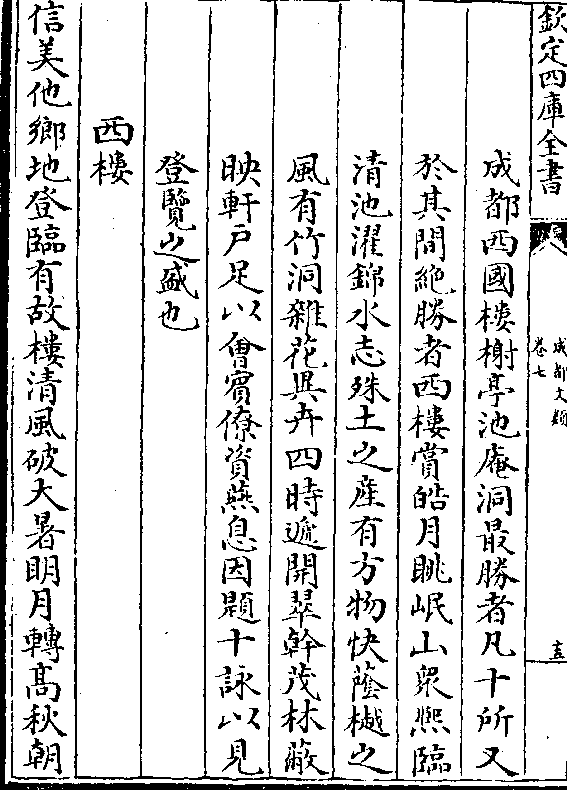 欽定四庫全書
成都文類
卷七
十五
成都西國樓榭亭池庵洞最勝者凡十所又
於其間絶勝者西樓賞皓月眺岷山衆熈臨
清池濯錦水志殊土之産有方物快蔭樾之
風有竹洞雜花異卉四時遞開翠幹茂林蔽
映軒戸足以㑹賓僚資燕息因題十詠以見
登覽之盛也
西樓
信美他鄉地登臨有故樓清風破大暑明月轉髙秋朝